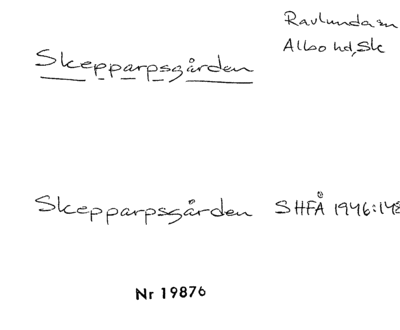 Skepparpsgården
Ravlunda sn
Albo hd, Sk
Skepparpsgården SHFÅ 1946:148
Nr 19876